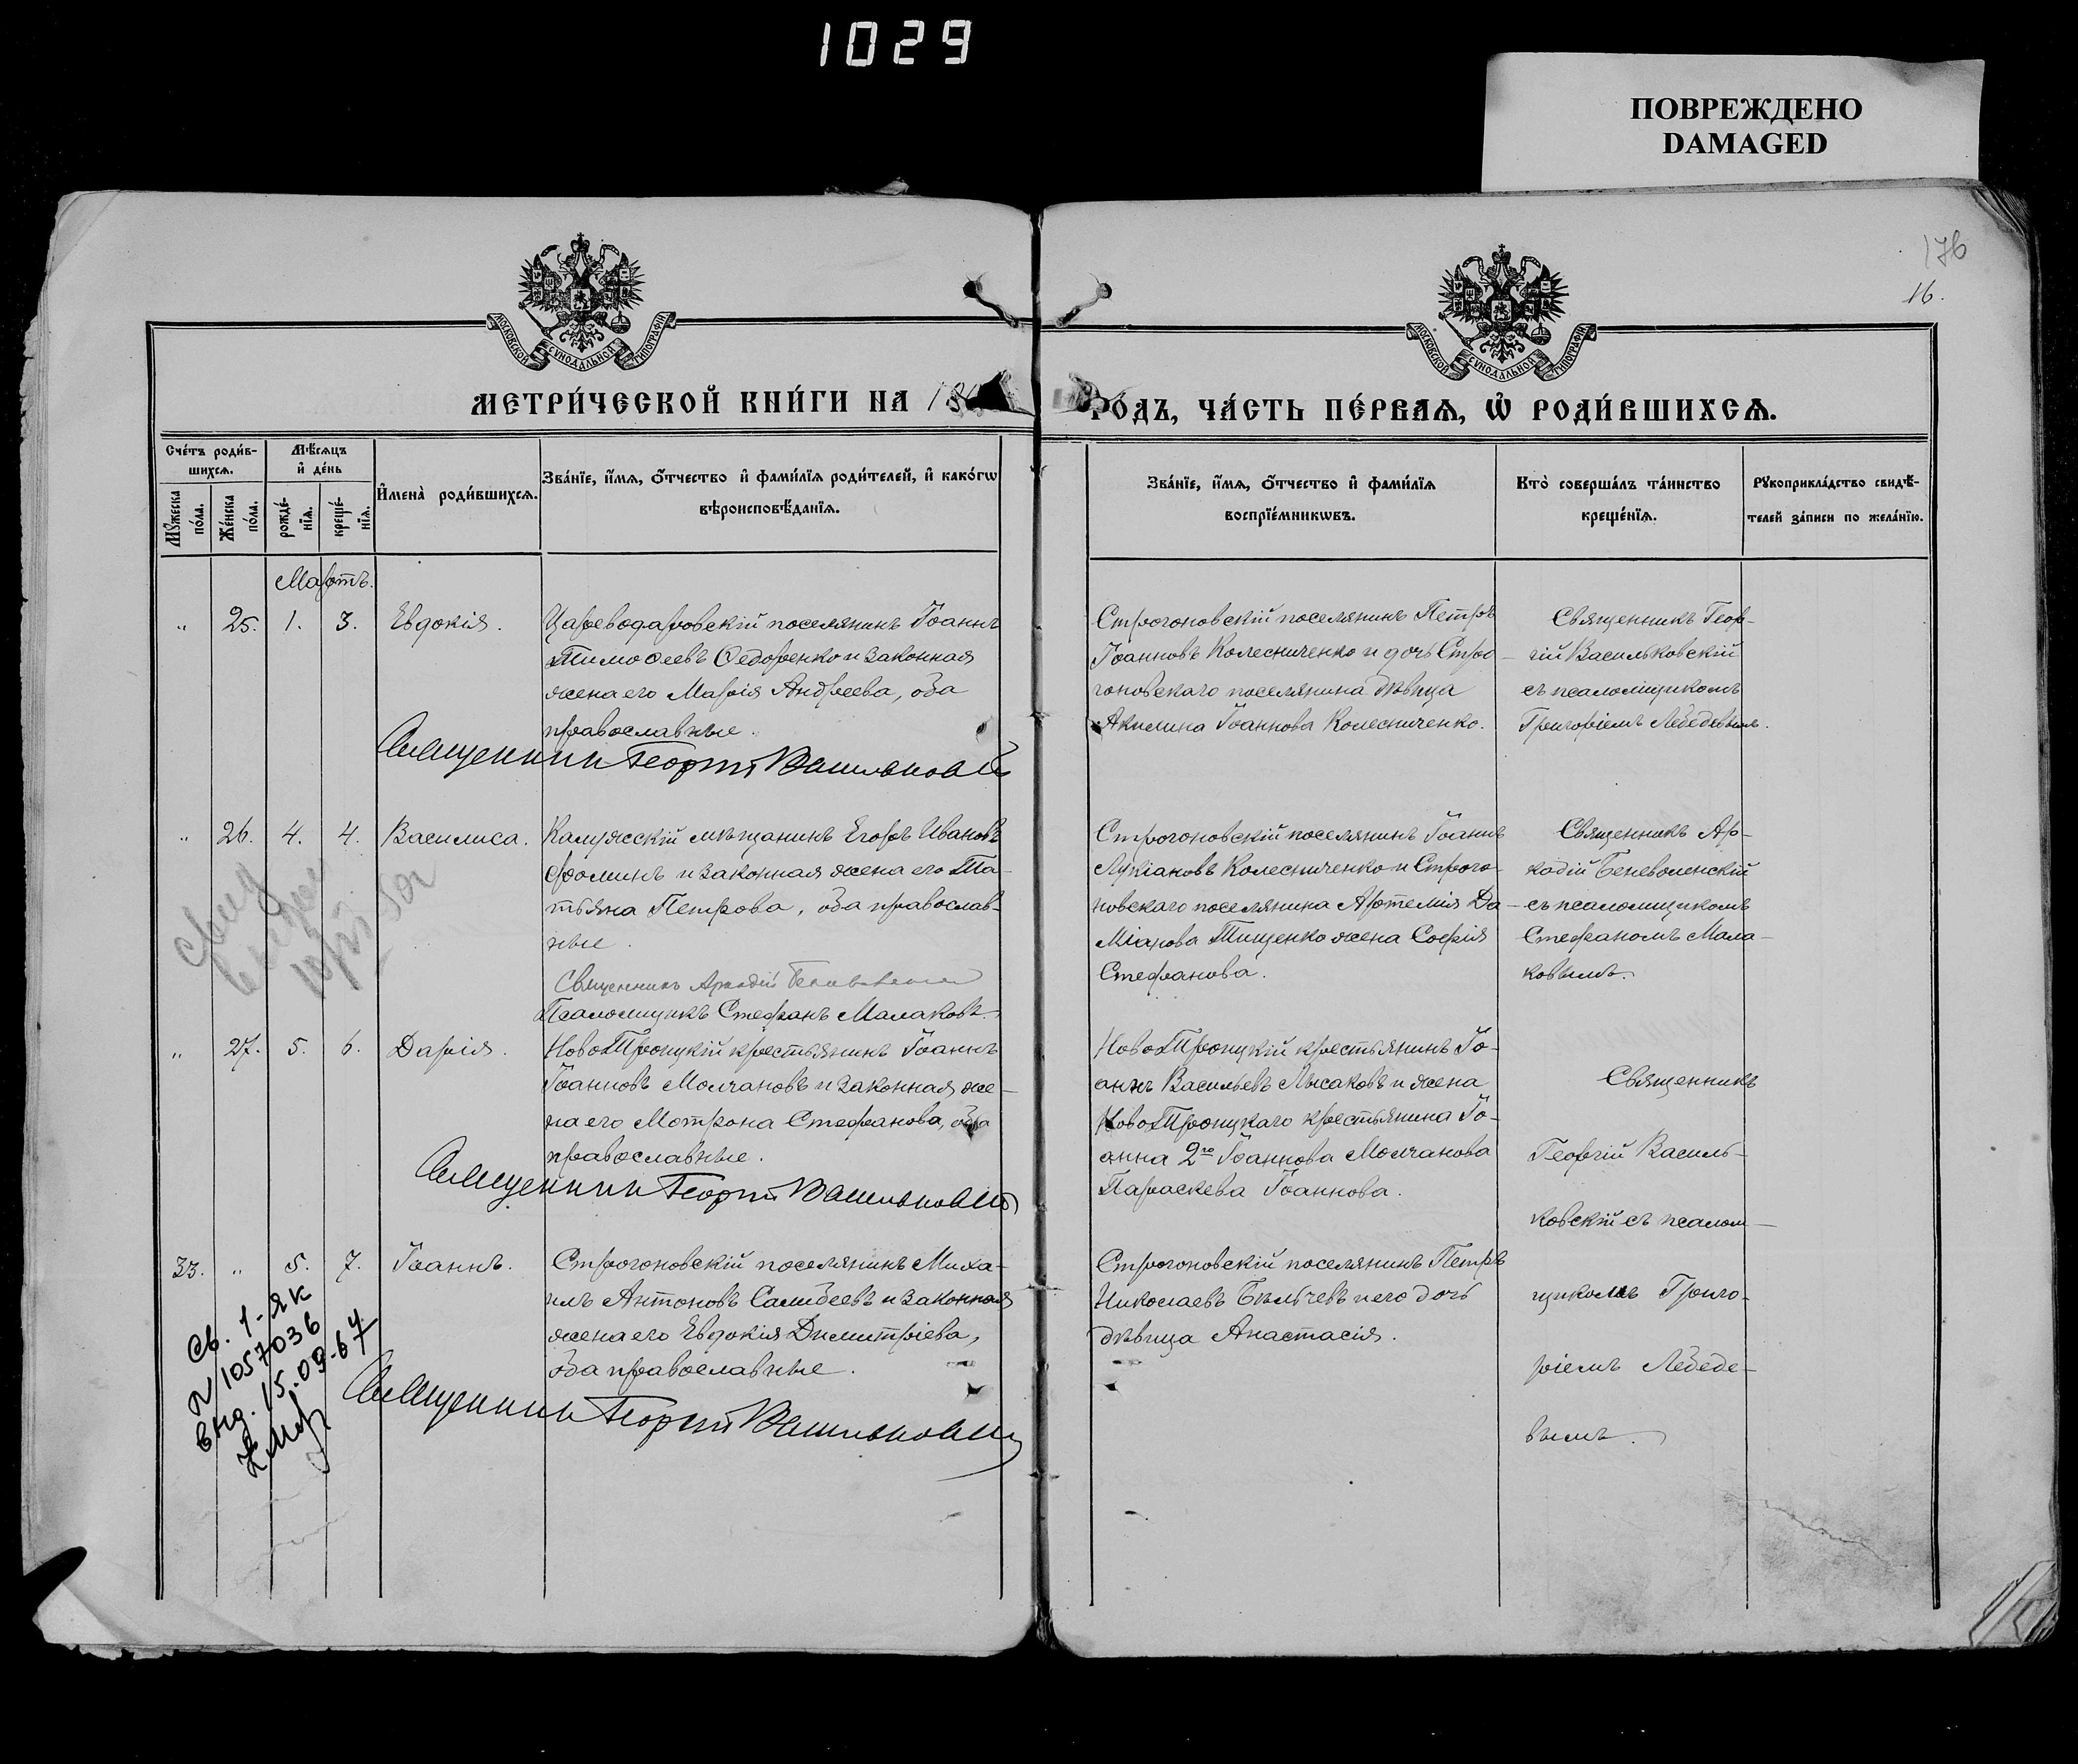 1029
ПОВРЕЖДЕНО
DAMAGED
176
16.
МОСКОВСКОЙ СѴНОДАЛЬНОЙ ТИПОГРАФІИ
МОСКОВСКОЙ СѴНОДАЛЬНОЙ ТИПОГРАФІИ
МЕТРИ́ЧЕСКОЙ КНИ́ГИ НА 18
ГО́ДЪ, ЧА́СТЬ ПЕ́РВАѦ, Ѡ҆ РОДИ́ВШИХСѦ.
Сче́тъ роди́в-
шихсѧ.
Мꙋ́жеска
по́ла.
Же́нска
по́ла.
Мѣ́сѧцъ
и҆ де́нь
рожде́-
нїѧ.
креще́-
нїѧ.
И҆мена̀ роди́вшихсѧ.
Зва́нїе, и҆́мѧ, ѻ҆́тчество и҆ фами́лїѧ роди́телей, и҆ како́гѡ
вѣроисповѣ́данїѧ.
Зва́нїе, и҆́мѧ, ѻ҆́тчество и҆ фами́лїѧ
воспрїе́мникѡвъ.
Кто̀ соверша́лъ та́инство
креще́нїѧ.
Рꙋкоприкла́дство свидѣ́-
телей за́писи по жела́нїю.
Мартъ.
„ 25. 1. 3. Евдокія.
Цареводаровскій поселянинъ Іоаннъ
Тимоѳеевъ Ѳедоренко и законная
жена его Марія Андреева, оба
православные.
Священникъ Георгій Васильковскій
Строгоновскій поселянинъ Петръ
Іоанновъ Колесниченко и дочь Стро-
гоновскаго поселянина дѣвица
Акилина Іоаннова Колесниченко.
Священникъ Геор-
гій Васильковскій
съ псаломщикомъ
Григоріемъ Лебедевымъ.
„ 26. 4. 4. Василиса.
Калужскій мѣщанинъ Егоръ Ивановъ
Фоминъ и законная жена его Та-
тьяна Петрова, оба православ-
ные.
Священникъ Аркадій Беневоленскій
Псаломщикъ Стефанъ Малаковъ.
Строгоновскій поселянинъ Іоаннъ
Лукіановъ Колесниченко и Строго-
новскаго поселянина Артемія Да-
міанова Тищенко жена Софія
Стефанова.
Священникъ Ар-
кадій Беневоленскій
съ псаломщикомъ
Стефаномъ Мала-
ковымъ.
„ 27. 5. 6. Дарія.
НовоТроицкій крестьянинъ Іоаннъ
Іоанновъ Молчановъ и законная же-
на его Мотрона Стефанова, оба
православные.
Священникъ Георгій Васильковскій
НовоТроицкій крестьянинъ Іо-
аннъ Васильевъ Лысаковъ и жена
НовоТроицкаго крестьянина Іо-
анна 2го Іоаннова Молчанова
Параскева Іоаннова.
Священникъ
Георгій Василь-
ковскій съ псалом-
щикомъ Григо-
ріемъ Лебеде-
вымъ.
33. „ 5. 7. Іоаннъ.
Строгоновскій поселянинъ Миха-
илъ Антоновъ Самбеевъ и законная
жена его Евдокія Димитріева,
оба православные.
Священникъ Георгій Васильковскій
Строгоновскій поселянинъ Петръ
Николаевъ Бѣлычевъ и его дочь
дѣвица Анастасія.
Св. 1-ЯК
N 1057036
выд. 15.09.67